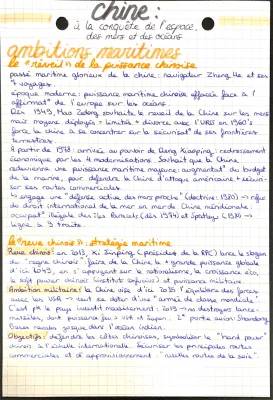 chine :
à la conquête de l'espace,
des mers et des océans
ambitions maritimes
le "réveil" de la puissance chinoise
passé maritime glorieux de la chine : navigateur Zheng He et ses
7 voyages.
époque moderne : puissance maritime chinoise effacée face à l'
affirmat° de l'europe sur les océans.
Dès 1949, Mao Zedong souhaite le recueil de la Chine sur les mers
mais moyens déployés limités + divorce avec l'URSS en 1960's
force la chine à se concentrer sur la sécurisat° de ses frontières
terrestres.
A partir de 1978 : arrivée au pouvoir de Deng Xiaoping : redressement
économique par les 4 modernisations. Souhait que la Chine
devienne une puissance maritime majeure : augmentat° du budget
de la marine, pour défendre la Chine d'attaque américaine + sécuri-
ser ses routes commerciales.
↳ engage une défense active des mers proche (doctrine : 1980) → refus
du droit international de la mer en mer de Chine méridionale,
occupat° illégale des îles Paracels (dès 1974) et Spratley 1980 →
ligne à 9 traits.
le "rêve chinois" : stratégie maritime
Rêve chinois : en 2013, Xi Jinping (président de la RPC) lance le slogan
du "rêve chinois" : faire de la Chine la + grande puissance globale
d'ici 2049, en s'appuyant sur le nationalisme, la croissance éco,
le soft power chinois (instituts confucius) et puissance militaire.
Ambition militaire : la Chine vise d'ici 2035 l'équilibre des forces
avec les USA → veut se doter d'une "armée de classe mondiale".
C'est pk le pays investit massivement : 2019 → 10 destroyers lance-
missiles, dont puissance feu > USA et Japon. 2e porte avion Shandong
Bases navales jusque dans l'océan indien.
Objectifs : défendre les côtes chinoises, symboliser le "hard power"
dans visée internationale. Sécuriser les principales routes
commerciales et d'approvisionnement : "nouvelles routes de la soie".